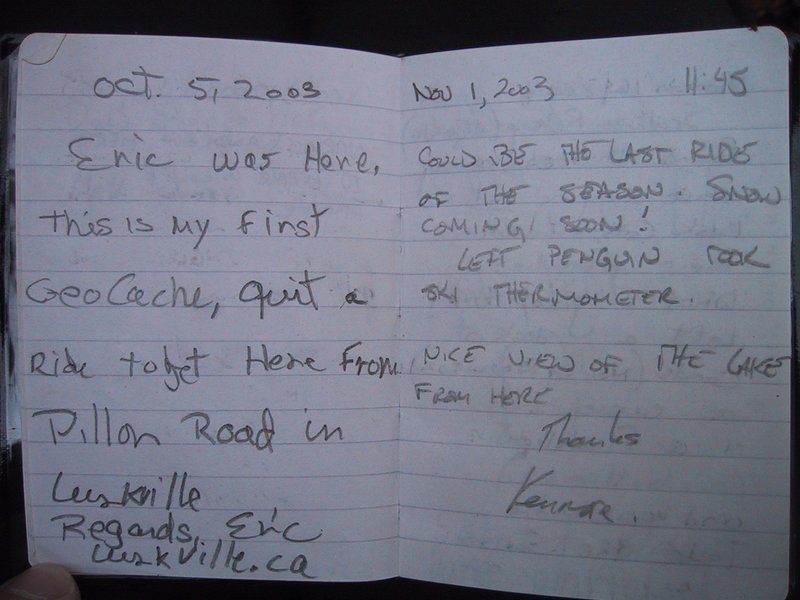 Oct. 5, 2003
Eric was Here,
this is my first
GeoCache, quit a
Ride to get Here From
Dillon Road in
Luskville
Regards, Eric
Luskville.ca
NOV 1, 2003 11:45
COULD BE THE LAST RIDE
OF THE SEASON. SNOW
COMING SOON!
LEFT PENGUIN TOOK
SKI THERMOMETER.
NICE VIEW OF THE LAKE
FROM HERE
Thanks